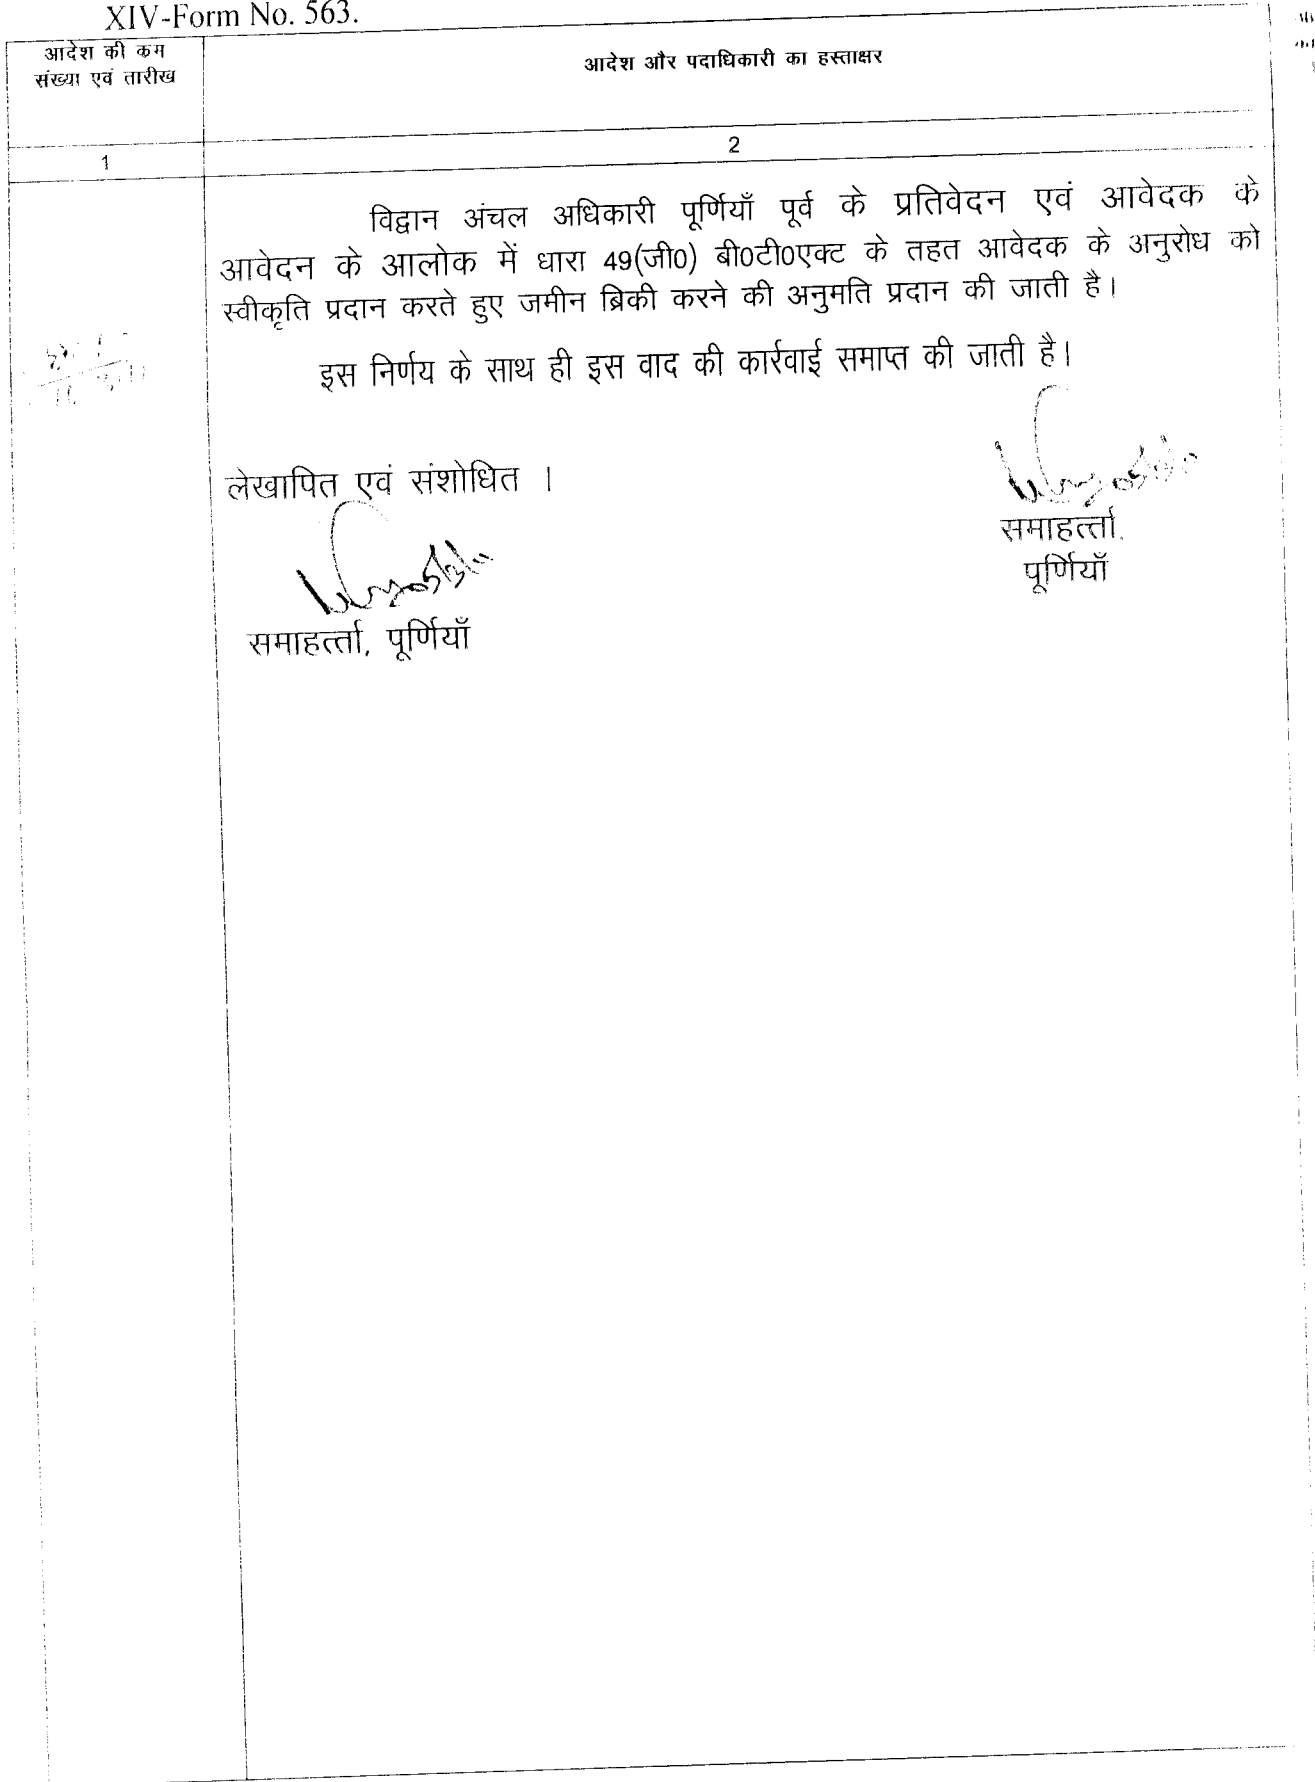 XIV-Form No. 563.
आदेश की कम
संख्या एवं तारीख
आदेश और पदाधिकारी का हस्ताक्षर
1
2
विद्वान अंचल अधिकारी पूर्णियाँ पूर्व के प्रतिवेदन एवं आवेदक के
आवेदन के आलोक में धारा 49(जी0) बी0टी0एक्ट के तहत आवेदक के अनुरोध को
स्वीकृति प्रदान करते हुए जमीन ब्रिकी करने की अनुमति प्रदान की जाती है।
इस निर्णय के साथ ही इस वाद की कार्रवाई समाप्त की जाती है।
लेखापित एवं संशोधित ।
समाहर्त्ता,
पूर्णियाँ
समाहर्त्ता, पूर्णियाँ